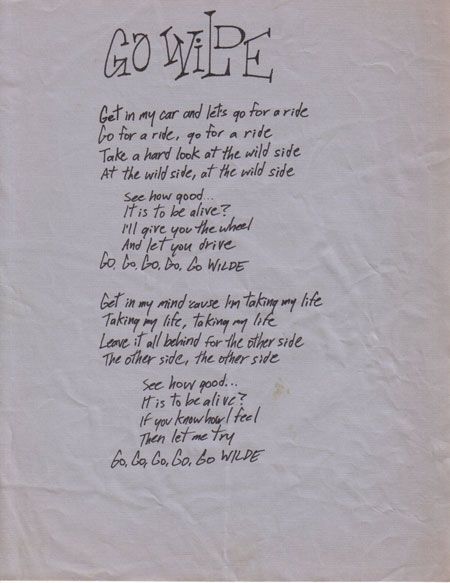 GO WiLDE
Get in my car and let's go for a ride
Go for a ride, go for a ride
Take a hard look at the wild side
At the wild side, at the wild side
See how good...
It is to be alive?
I'll give you the wheel
And let you drive
Go, Go, Go, Go, Go WILDE
Get in my mind 'cause I'm taking my life
Taking my life, taking my life
Leave it all behind for the other side
The other side, the other side
See how good...
It is to be alive?
If you know how I feel
Then let me try
Go, Go, Go, Go, Go WILDE